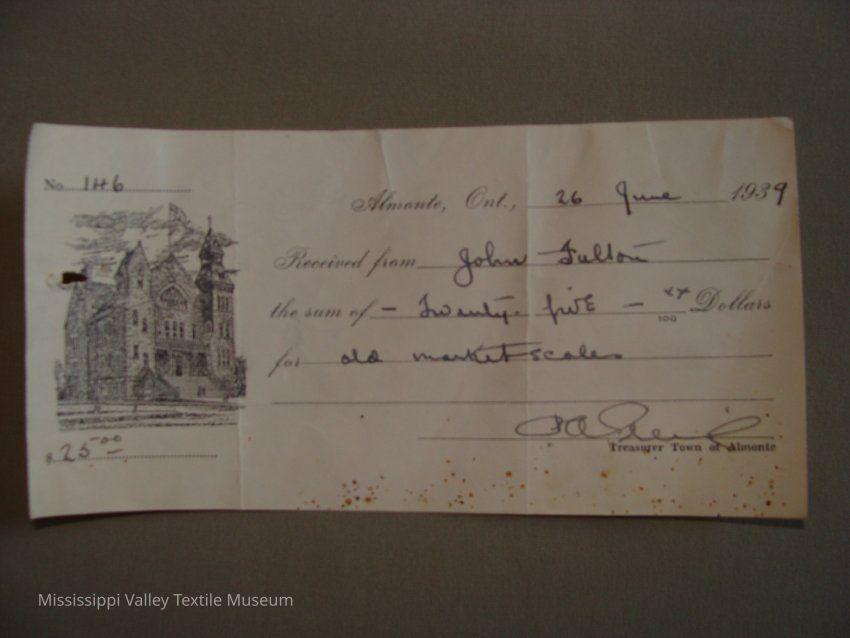 No. 146
Almonte, Ont., 26 June 1939
Received from John Fulton
the sum of - Twenty-five - xx/100 Dollars
for old market scales
Treasurer Town of Almonte
$ 25.00
Mississippi Valley Textile Museum